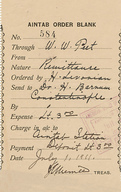 AINTAB ORDER BLANK
No. 584
Through W. W. Peet
From
Nature Remittance
Ordered by H. Levonian
Send to Dr. H. Barnum
Constantinople
By
Expense Lt. 3.00
Charge in a/c to
Aintab Station
Payment Deposit Lt 3.00
Date July 1, 1911.
TREAS.